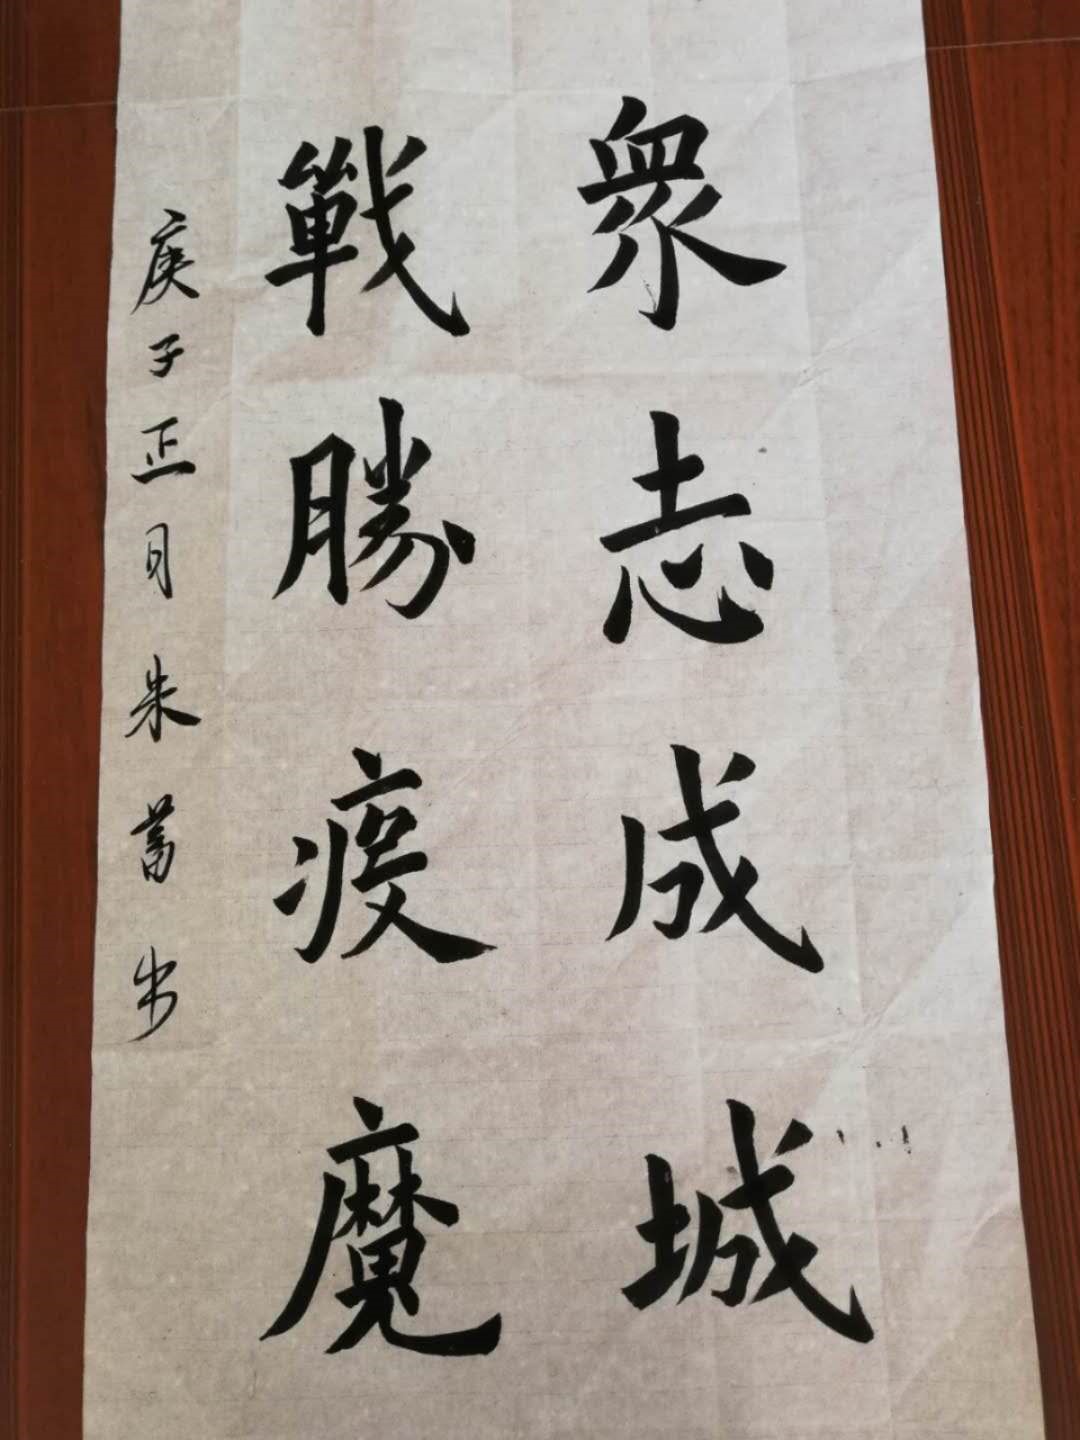 眾志成城
戰勝疫魔
庚子正月朱